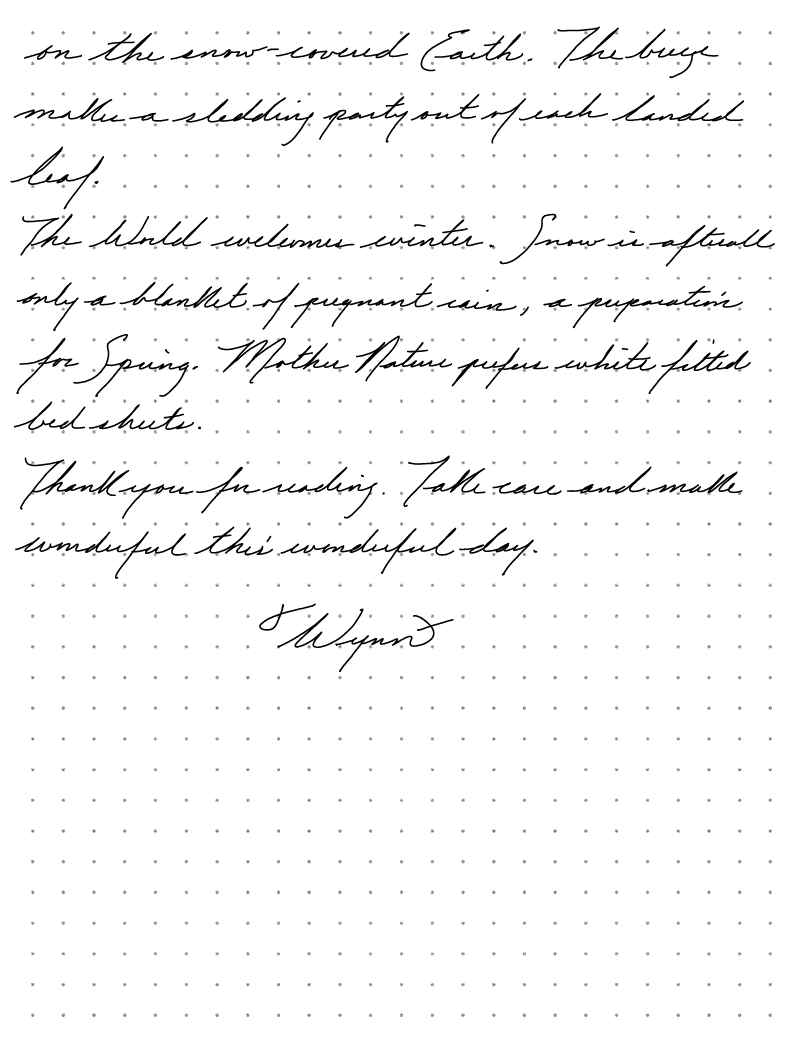 on the snow-covered Earth. The breeze
makes a sledding party out of each landed
leaf.
The World welcomes winter. Snow is afterall
only a blanket of pregnant rain, a preparation
for Spring. Mother Nature prefers white fitted
bed sheets.
Thank you for reading. Take care and make
wonderful this wonderful day.
Wynn